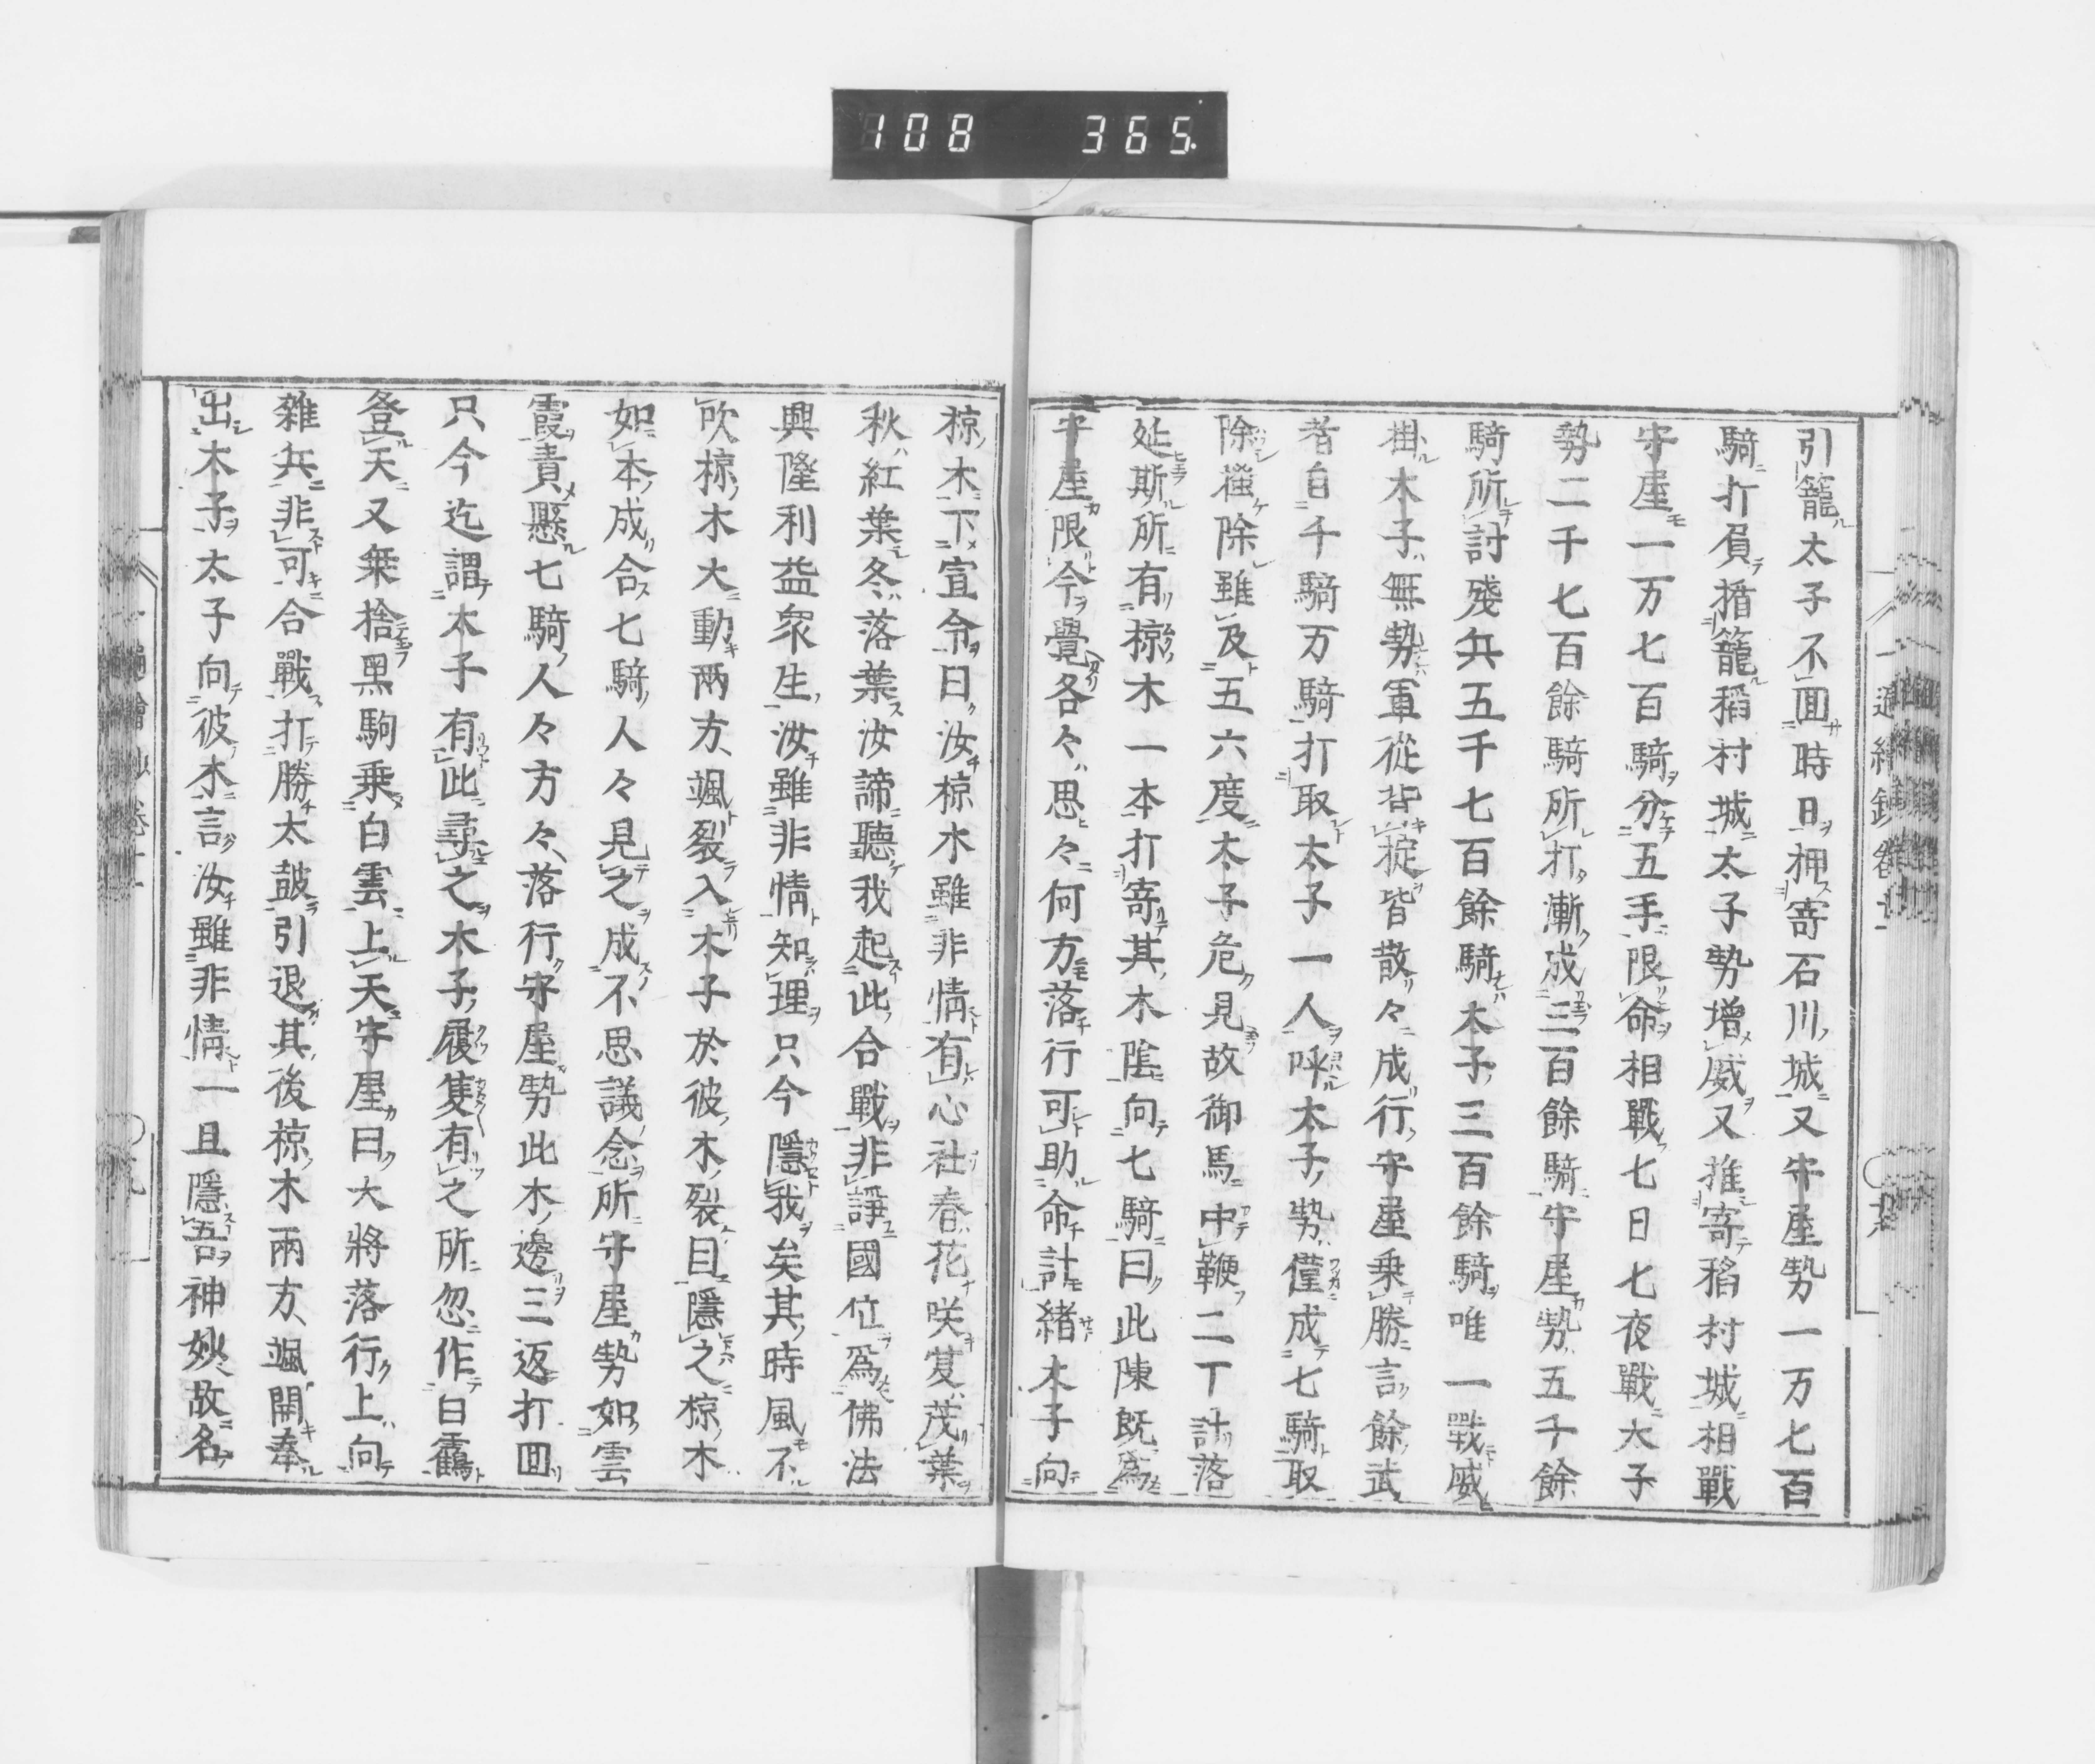 108 365
引籠太子不回時日押寄石川城又守屋勢一万七百
騎打負楯籠稻村城太子勢增威又推寄稻村城相戰
守屋一万七百騎分五手限命相戰七日七夜戰太子
勢二千七百餘騎所打漸成三百餘騎守屋勢五千餘
騎所討殘兵五千七百餘騎太子三百餘騎唯一戰威
掛太子無勢軍從背掟皆散々成行守屋乗勝言餘武
者自千騎万騎打取太子一人呼太子勢僅成七騎取
除襁除雖及五六度太子危見故御馬中鞭二丁計落
延斯所有椋木一本打寄其木陰向七騎曰此陳既為
守屋限今覺各々思々何方落行可助命計緒太子向
椋木下宣令曰汝椋木雖非情有心社春花咲夏茂葉
秋紅葉冬落葉汝諦聽我起此合戰非諍國位爲佛法
興隆利益衆生汝雖非情知理只今隱我矣其時風不
吹椋木大動兩方颯裂入太子於彼木裂目隱之椋木
如本成合七騎人々見之成不思議念所守屋勢如雲
霞責懸七騎人々方々落行守屋勢此木邊三返打回
只今迄謂太子有此尋之太子履隻有之所忽作白鷁
登天又乗捨黒駒乗白雲上天守屋曰大將落行上向
雜兵非可合戰打勝太皷引退其後椋木兩方颯開奉
出太子太子向彼木言汝雖非情一旦隱吾神妙故名